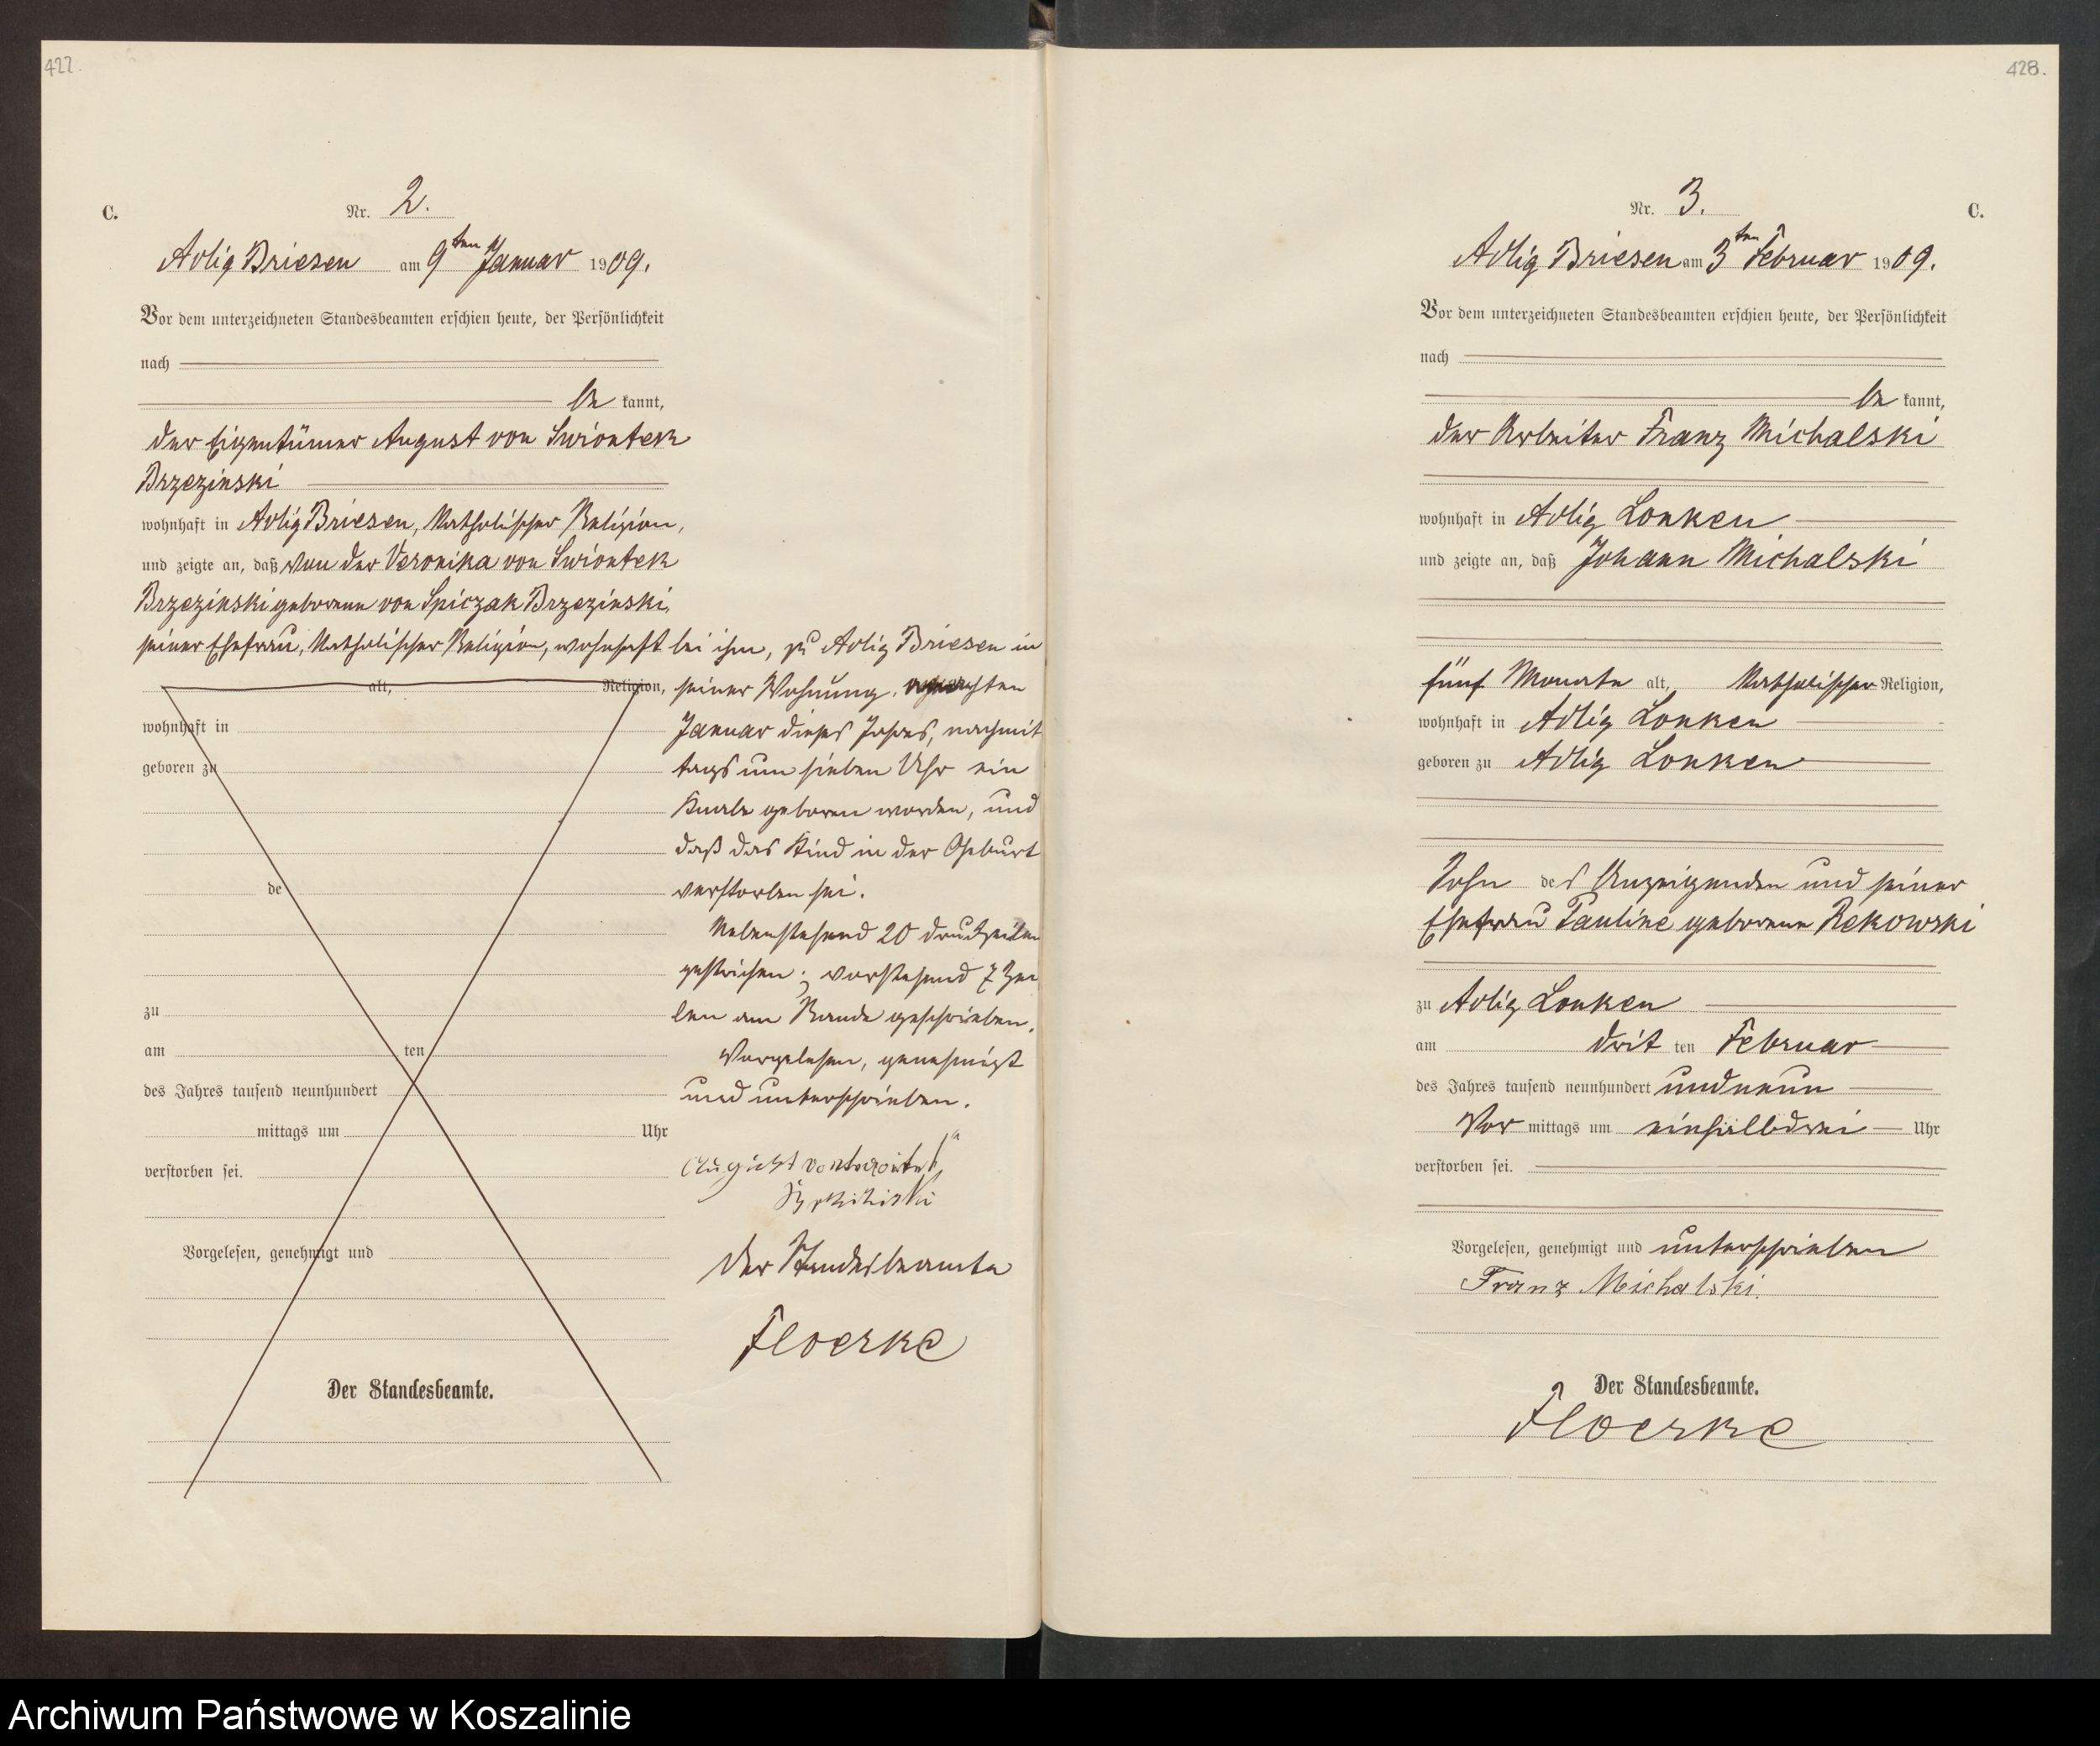 427.
C.
Nr. 2.
Adlig Briesen am 9ten Januar 1909.
Vor dem unterzeichneten Standesbeamten erschien heute, der Persönlichkeit
nach
be kannt,
der Eigentümer August von Swiontek
Brzezinski
wohnhaft in Adlig Briesen, katholischer Religion,
und zeigte an, daß von der Veronika von Swiontek
Brzezinski geborene von Spiczak Brzezinski,
seiner Ehefrau, katholischer Religion, wohnhaft bei ihm, zu Adlig Briesen in
alt, Religion,
wohnhaft in
geboren zu
de
zu
am ten
des Jahres tausend neunhundert
mittags um Uhr
verstorben sei.
Vorgelesen, genehmigt und
Der Standesbeamte.
seiner Wohnung, am achten
Januar dieses Jahres, nachmit
tags um sieben Uhr ein
Knabe geboren worden, und
daß das Kind in der Geburt
verstorben sei.
Nebenstehend 20 Druckzeilen
gestrichen; vorstehend 7 Zei
len am Rande geschrieben.
Vorgelesen, genehmigt
und unterschrieben.
August von
Der Standesbeamte
Floerke
428.
C.
Nr. 3.
Adlig Briesen am 3ten Februar 1909.
Vor dem unterzeichneten Standesbeamten erschien heute, der Persönlichkeit
nach
be kannt,
der Arbeiter Franz Michalski
wohnhaft in Adlig Lonken
und zeigte an, daß Johann Michalski
fünf Monate alt, katholischer Religion,
wohnhaft in Adlig Lonken
geboren zu Adlig Lonken
Sohn des Anzeigenden und seiner
Ehefrau Pauline geborene Rekowski
zu Adlig Lonken
am drit ten Februar
des Jahres tausend neunhundert und neun
Vor mittags um einhalbdrei Uhr
verstorben sei.
Vorgelesen, genehmigt und unterschrieben
Franz Michalski.
Der Standesbeamte.
Floerke
Archiwum Państwowe w Koszalinie